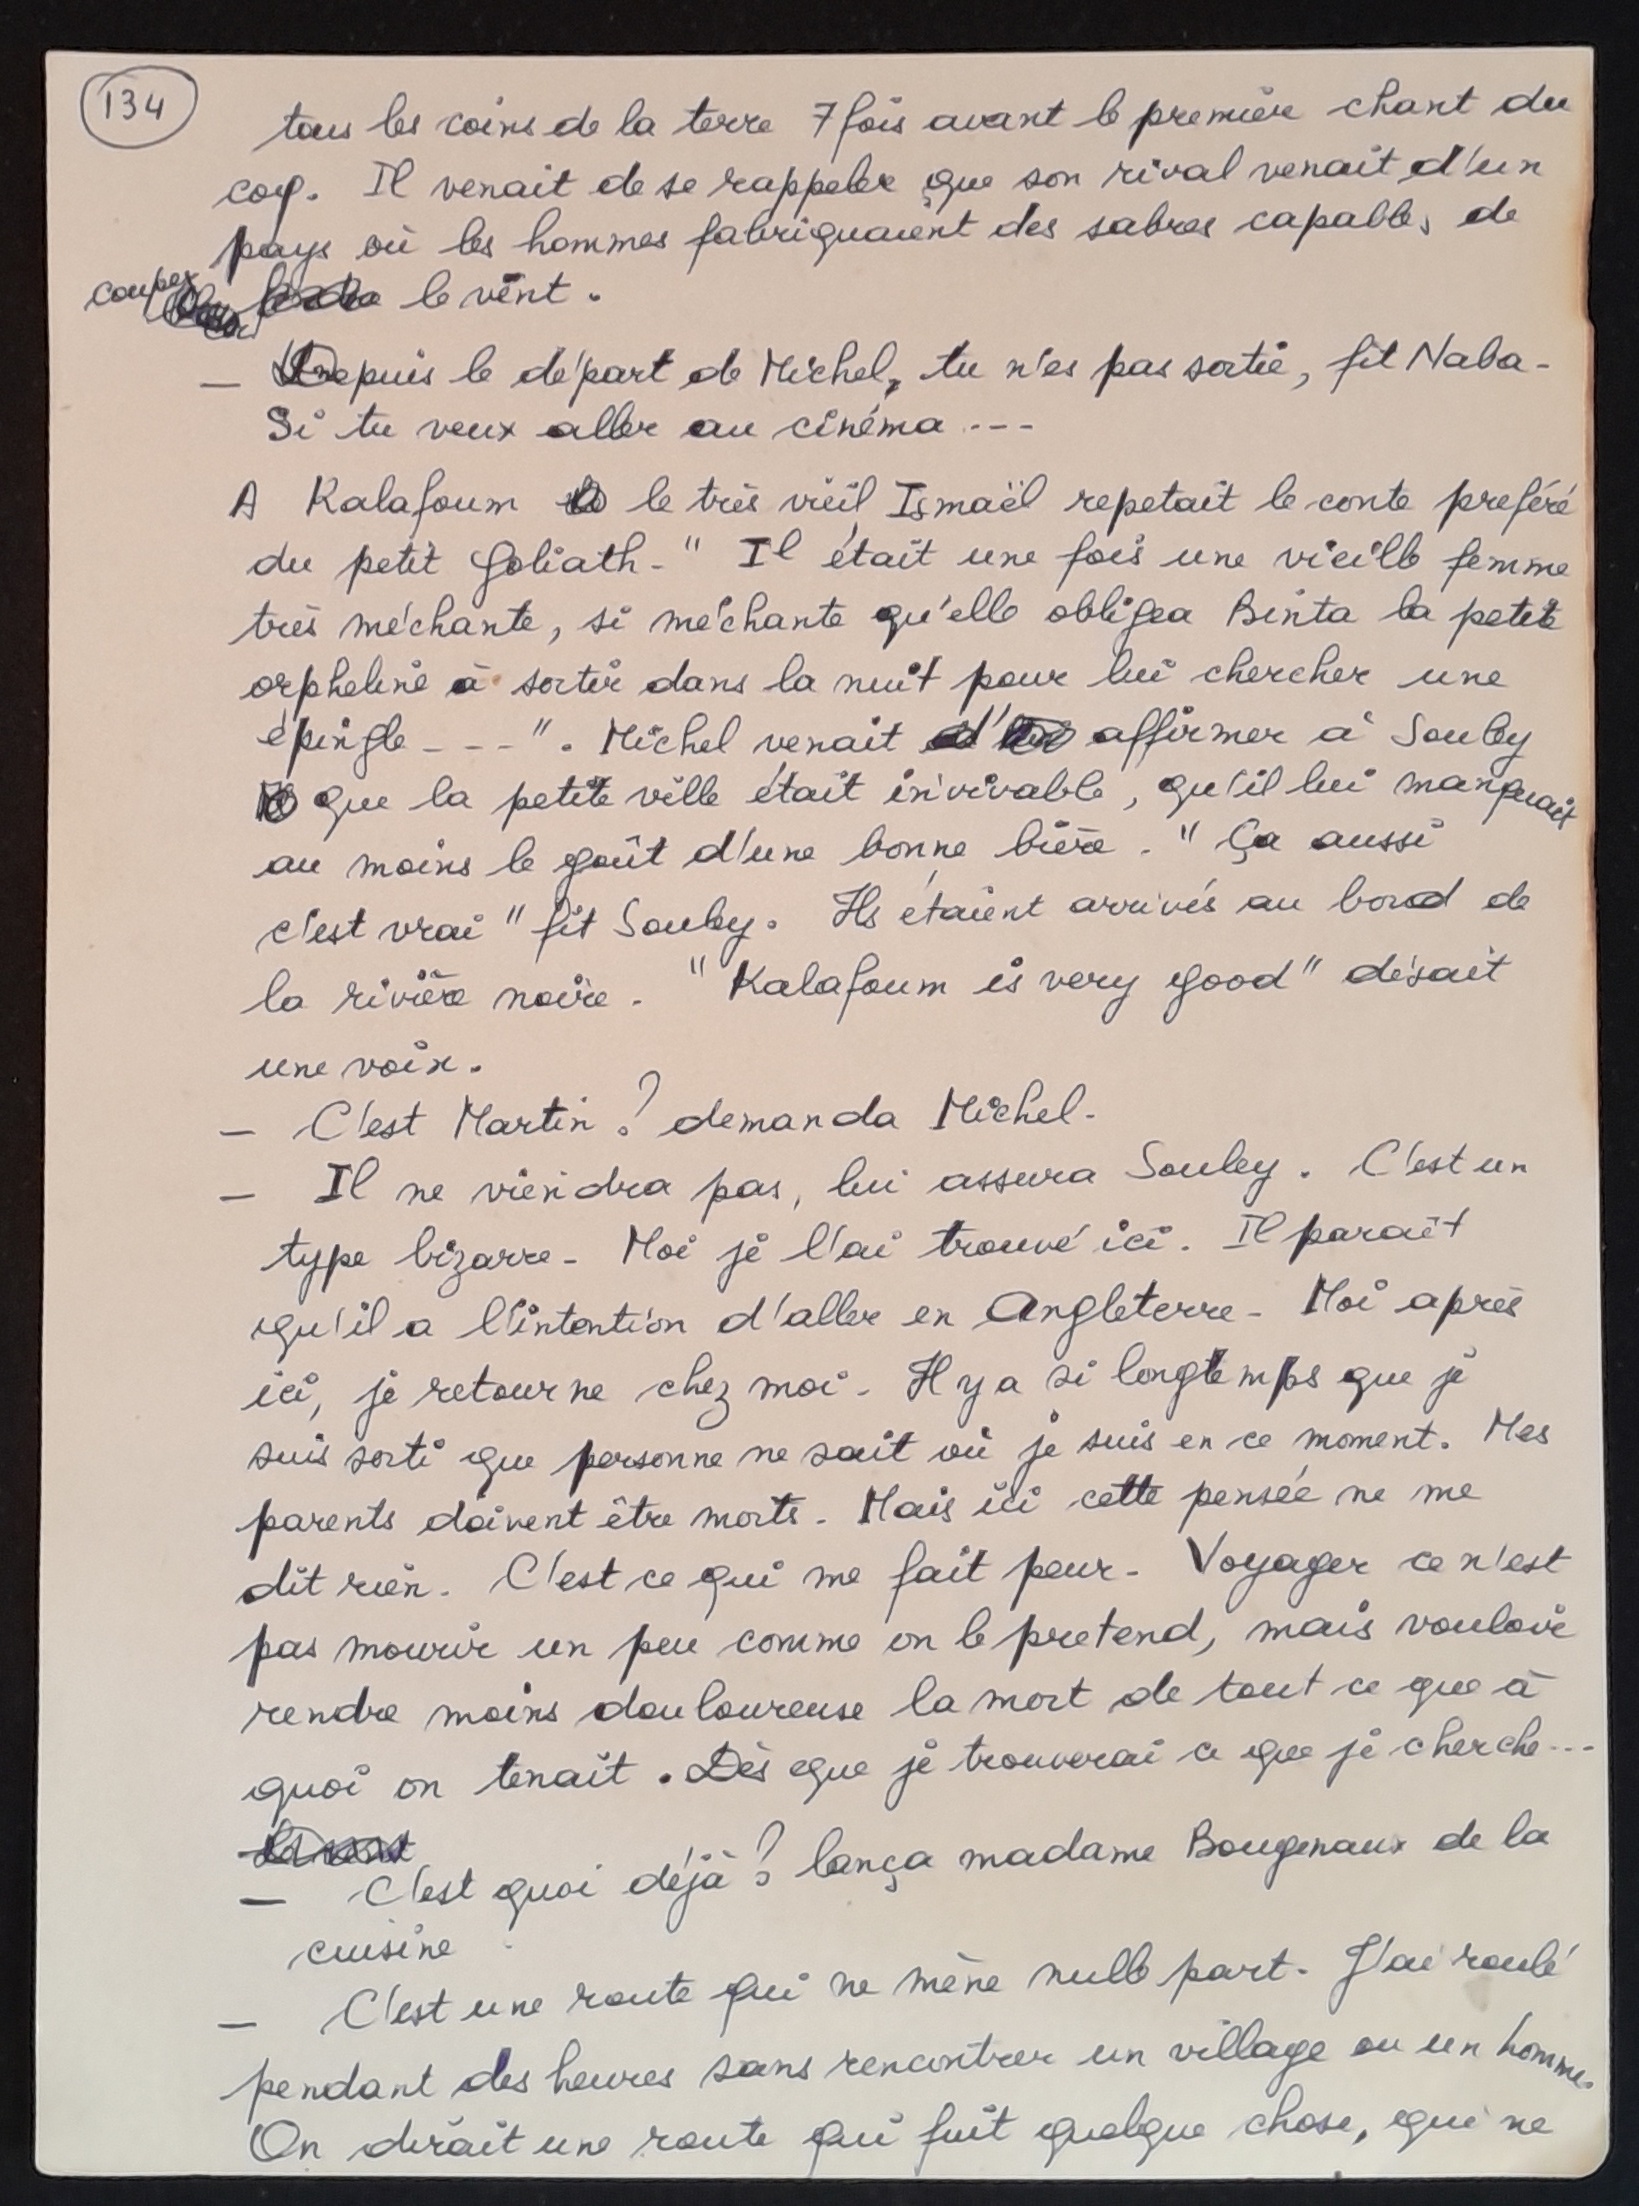 134
tous les coins de la terre 7 fois avant le première chant du
coq. Il venait de se rappeler que son rival venait d'un
pays où les hommes fabriquaient des sabres capables de
couper le vent.
— Depuis le départ de Michel, tu n'es pas sortie, fit Naba-
Si tu veux aller au cinéma ---
A Kalafoum le très vieil Ismaël repetait le conte preféré
du petit Goliath- " Il était une fois une vieille femme
très méchante, si méchante qu'elle obligea Binta la petite
orpheline à sortir dans la nuit pour lui chercher une
épingle - - - ". Michel venait d' affirmer à Souley
que la petite ville était invivable, qu'il lui manquait
au moins le goût d'une bonne bière. " Ça aussi
c'est vrai " fit Souley. Ils étaient arrivés au bord de
la rivière noire. " Kalafoum is very good " disait
une voix.
— C'est Martin ? demanda Michel-
— Il ne viendra pas, lui assura Souley. C'est un
type bizarre- Moi je l'ai trouvé ici. Il paraît
qu'il a l'intention d'aller en Angleterre- Moi après
ici, je retourne chez moi- Il y a si longtemps que je
suis sorti que personne ne sait où je suis en ce moment. Mes
parents doivent être morts- Mais ici cette pensée ne me
dit rien- C'est ce qui me fait peur- Voyager ce n'est
pas mourir un peu comme on le pretend, mais vouloir
rendre moins douloureuse la mort de tout ce que à
quoi on tenait. Dès que je trouverai ce que je cherche ---
— C'est quoi déjà ? lança madame Bougenaux de la
cuisine
— C'est une route qui ne mène nulle part- J'ai roulé
pendant des heures sans rencontrer un village ou un homme.
On dirait une route qui fuit quelque chose, qui ne